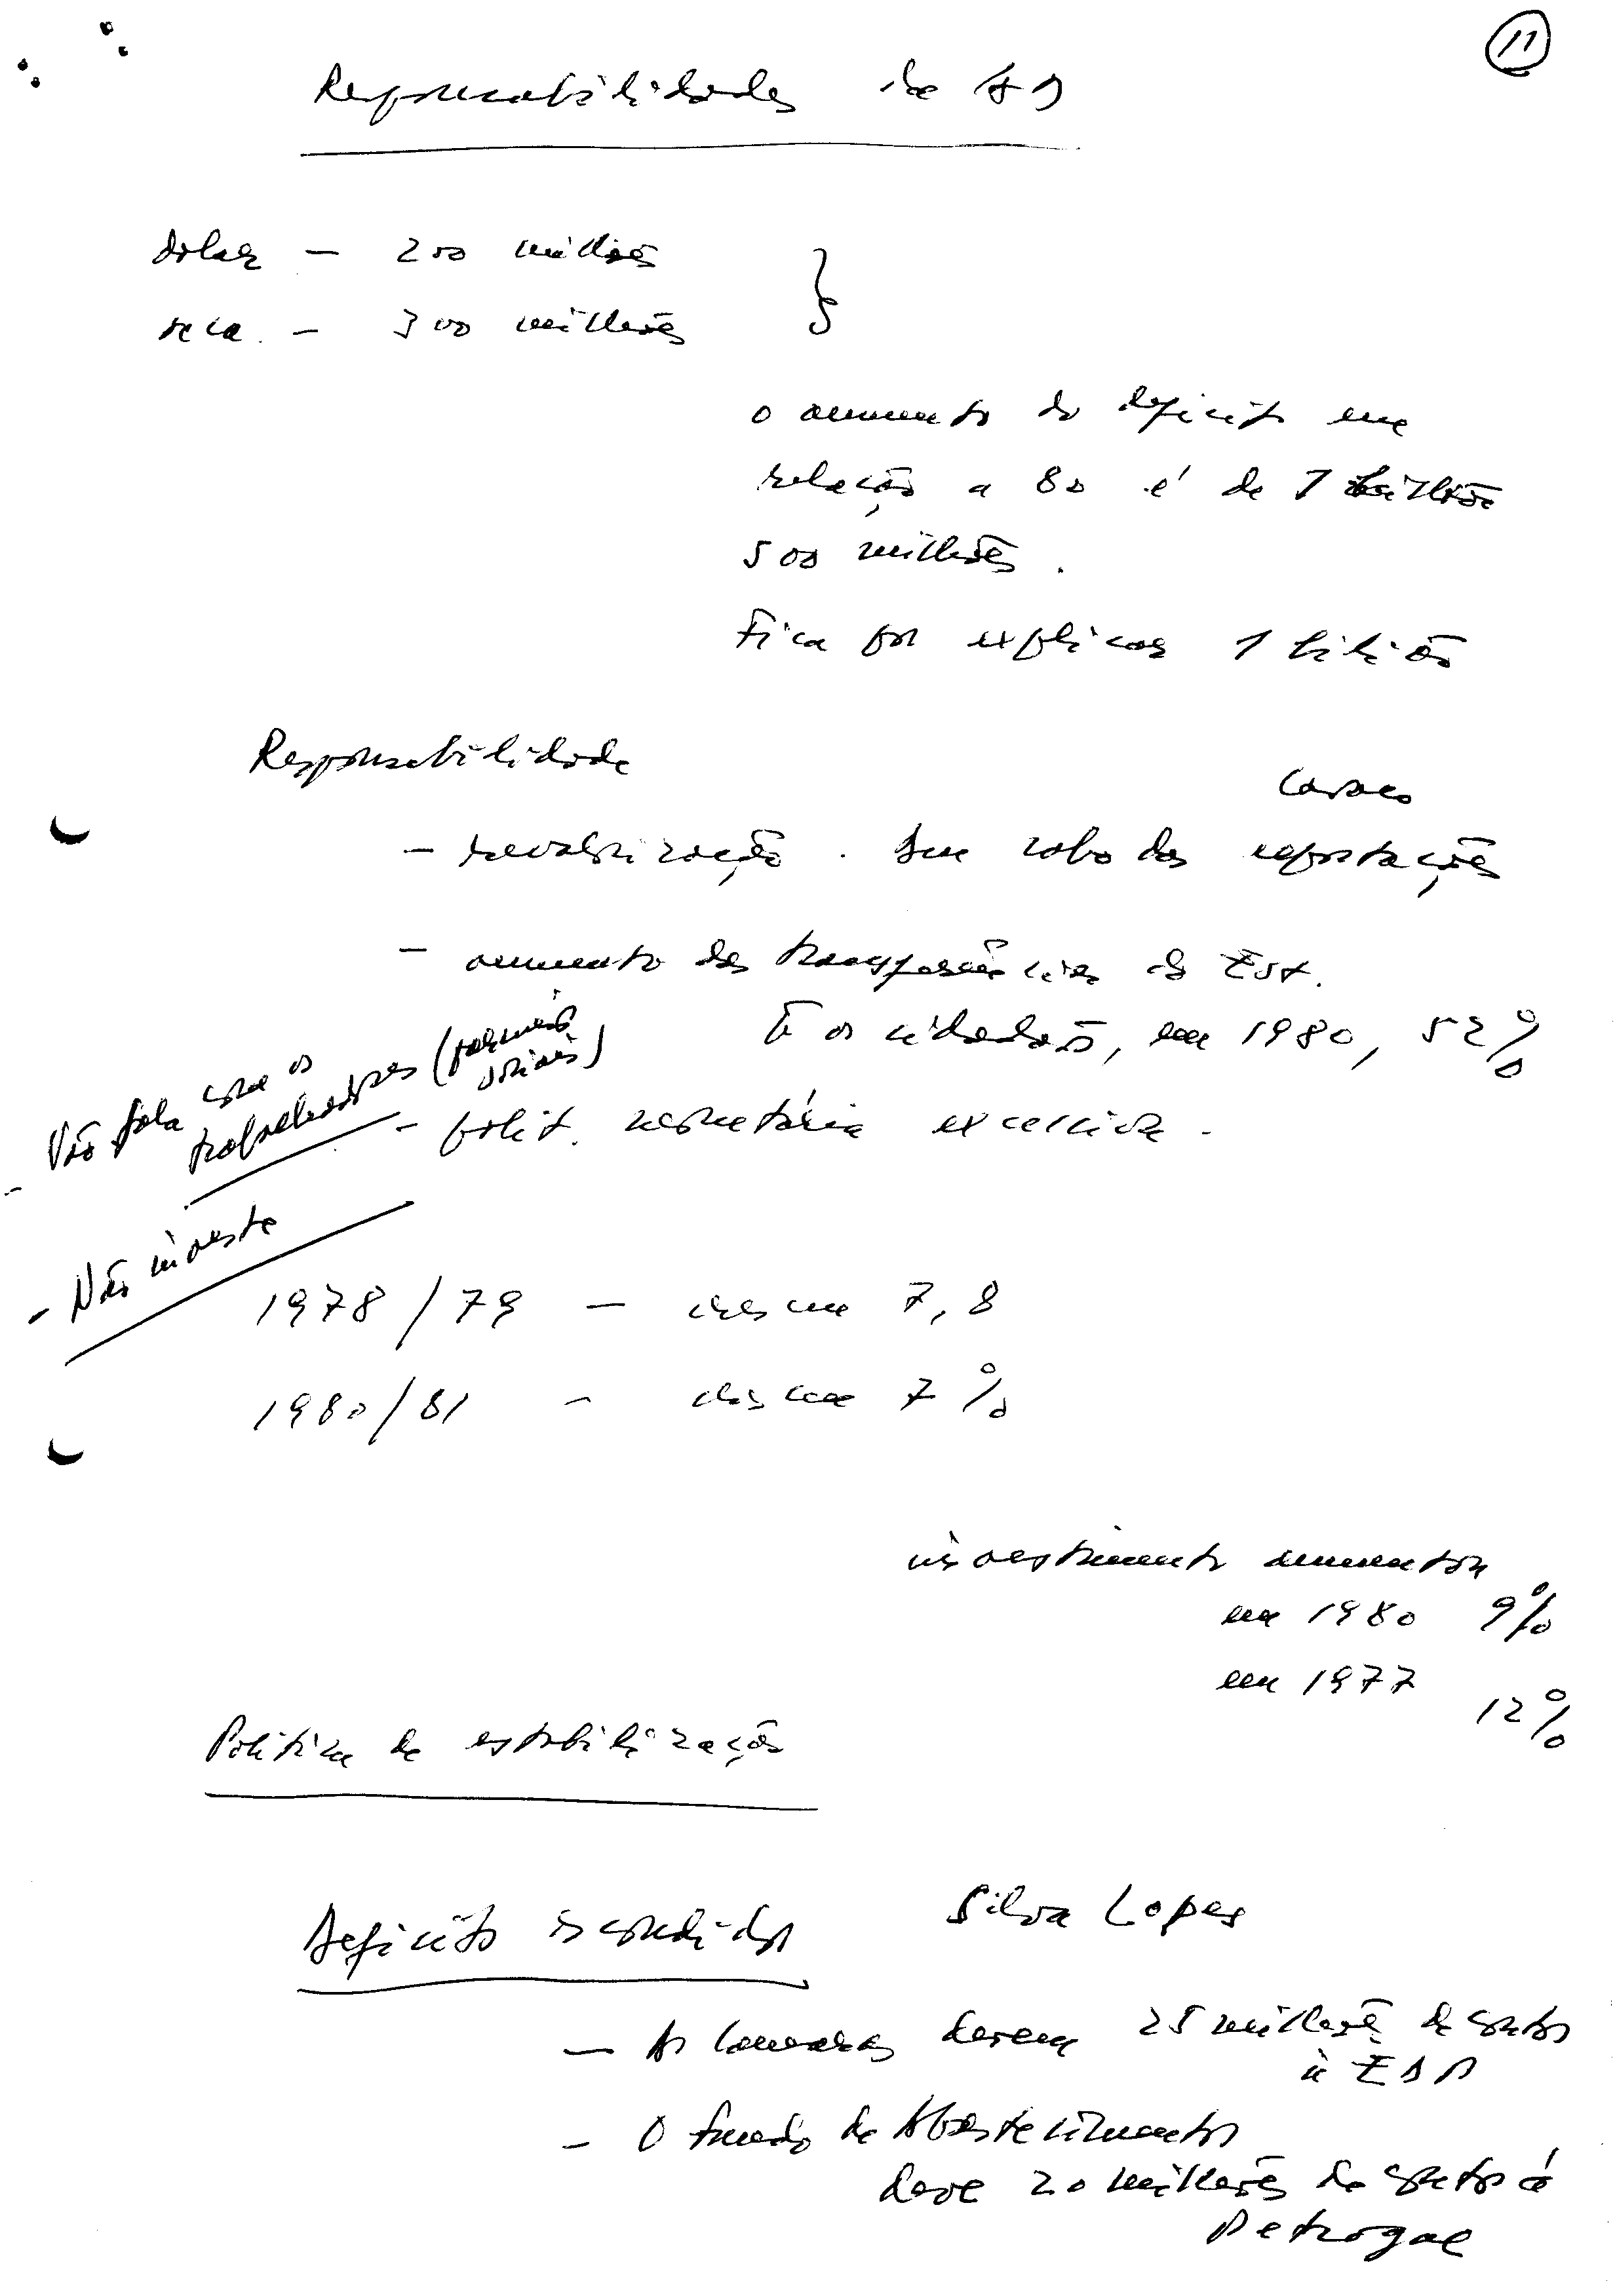 11
Responsabilidades da AD
dolar - 200 milhões
seca - 300 milhões
o aumento do deficit em
relação a 80 é de 1 bilião
500 milhões.
Fica por explicar 1 bilião
Responsabilidade
- revalorização.
- aumento das transferências do Est.
E os cidadãos, em 1980, 52%
- Não fala com os
trabalhadores (parceiros
sociais)
- polit. monetária excessiva.
- Não investe
1978/79 - cresceu 7,8
1980/81 - cresceu 7%
investimento aumentou
em 1980 9%
em 1977
12%
Politica de estabilização
Deficits escondidos Silva Lopes
- As Camaras devem 25 milhões de contos
à EDP
- O fundo de Abastecimento
deve 20 milhões de contos à
Petrogal